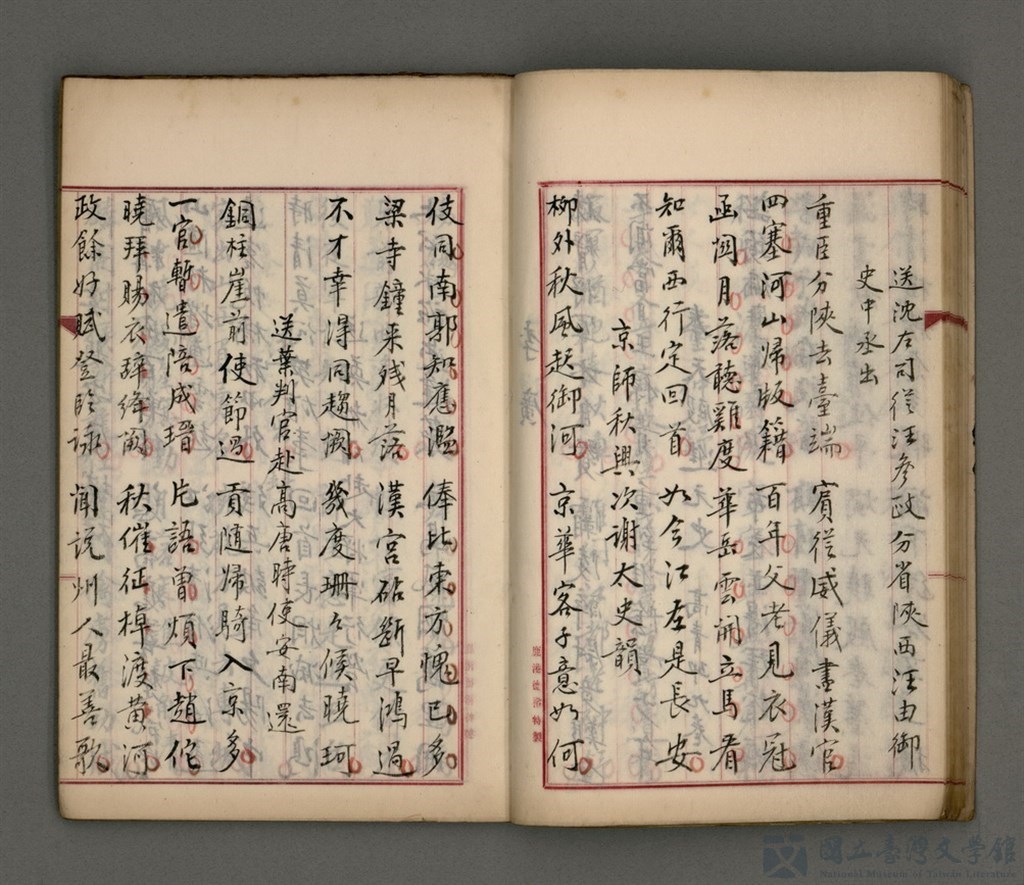 送沈左司從汪參政分省陝西汪由御
史中丞出
重臣分陝去臺端　賓從威儀盡漢官
四塞河山帰版籍　百年父老見衣冠
函関月落聴雞度　華岳雲開立馬看
知爾西行定回首　如今江左是長安
京師秋興次謝太史韻
柳外秋風起御河　京華客子意如何
伎同南郭知應濫　俸比東方愧已多
梁寺鐘来残月落　漢宮砧断早鴻過
不才幸得同趨闕　幾度珊々候曉珂
送葉判官赴高唐時使安南還
銅柱崖前使節過　貢随帰騎入京多
一官暫遣陪成瑨　片語曾煩下趙佗
曉拜賜衣辞絳闕　秋催征棹渡黄河
政餘好賦登臨詠　聞説州人最善歌
鹿港
特製
國立臺灣文學館
National Museum of Taiwan Literature